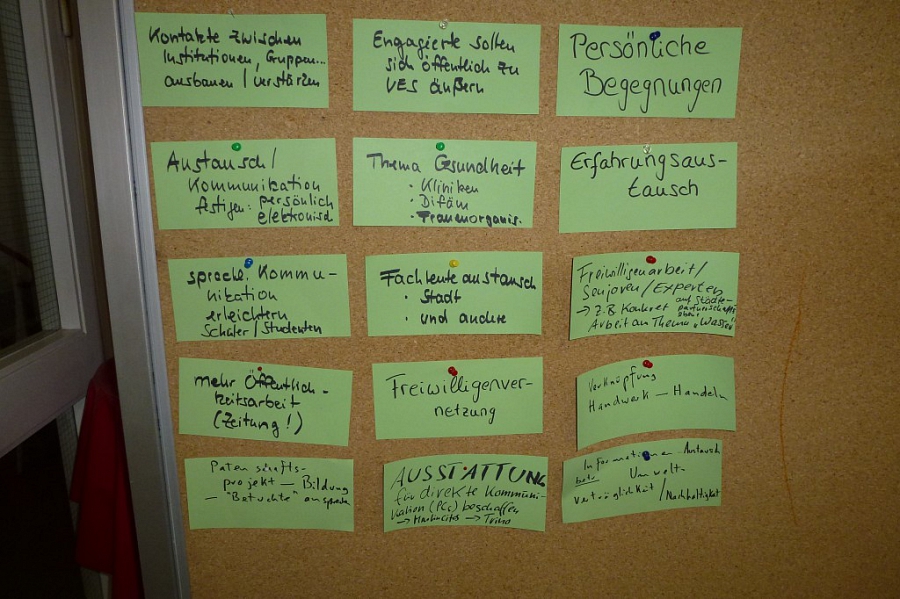 Kontakte zwischen
Institutionen, Gruppen...
ausbauen / verstärken
Engagierte sollen
sich öffentlich zu
VES äußern
Persönliche
Begegnungen
Austausch /
Kommunikation
festigen: persönlich
elektronisch
Thema Gesundheit
· Kliniken
· Difäm
· Frauenorganis.
Erfahrungsaus-
tausch
sprachl. Kommu-
nikation
erleichtern
Schüler / Studenten
Fachleuteaustausch
· Stadt
· und andere
Freiwilligenarbeit /
Senioren / Experten
→ z.B. Konkret auf Städte-
partnerschafts
Arbeit am Thema „Wasser"
mehr Öffentlich-
keitsarbeit
(Zeitung!)
Freiwilligenver-
netzung
Verknüpfung
Handwerk — Handeln
Patenschafts-
projekt — Bildung
—
AUSSTATTUNG
für direkte Kommuni-
kation (PCs) beschaffen
→ →
Informationen Austausch
betr. Umwelt-
verträglichkeit / Nachhaltigkeit